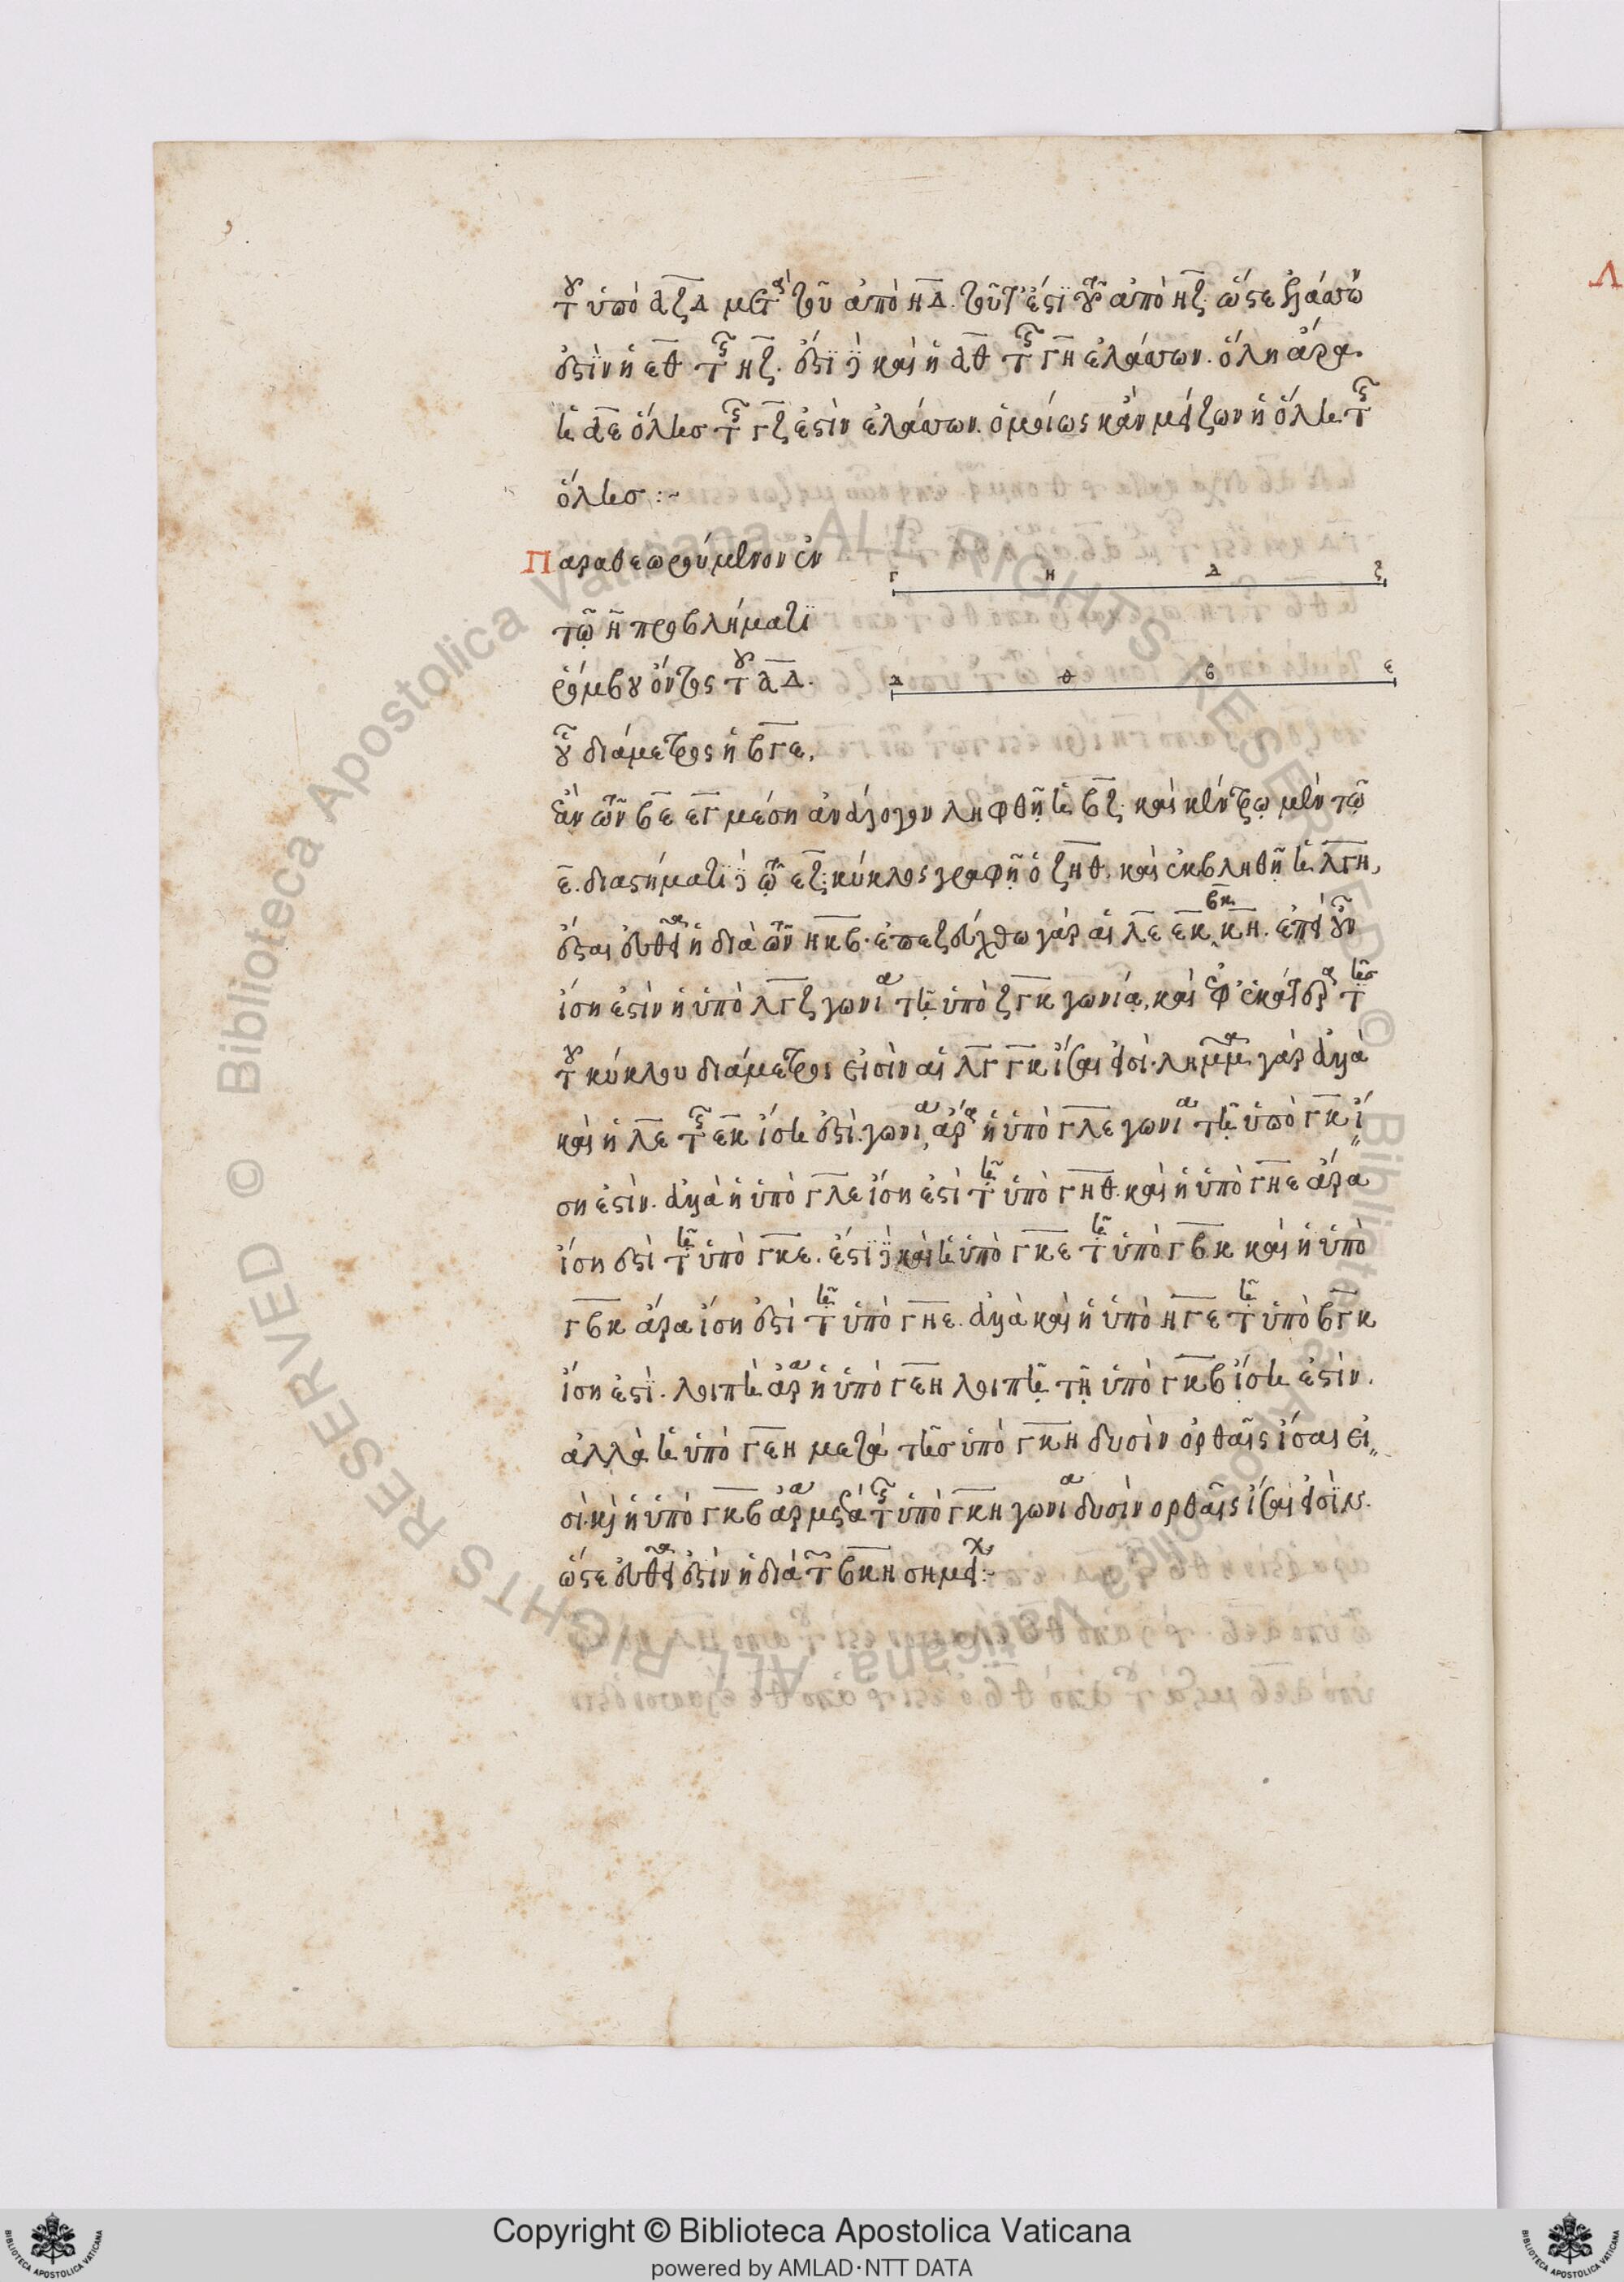 τοῦ ὑπὸ ΔΖΔ μετὰ τοῦ ἀπὸ ΗΔ. τουτέστι τοῦ ἀπὸ ΗΖ. ὥστε ἐλάσσων
ἐστὶν ἡ ΕΘ τῆς ΗΖ. ἔστι δὲ καὶ ἡ ΑΘ τῆς ΓΗ ἐλάσσων. ὅλη ἄρα
ἡ ΑΕ ὅλης τῆς ΓΖ ἐστὶν ἐλάσσων. ὁμοίως κἂν μείζων ἡ ὅλη τῆς
ὅλης :~
Παραθεωρούμενον ἐν
τῷ η προβλήματι
ῥόμβου ὄντος τοῦ ΑΔ.
οὗ διάμετρος ἡ ΒΓΕ,
Γ Η Δ Ζ
Α Θ Β Ε
ἐὰν τῶν ΒΕ ΕΓ μέση ἀνάλογον ληφθῇ ἡ ΕΖ. καὶ κέντρῳ μὲν τῷ
Ε. διαστήματι δὲ τῷ ΕΖ κύκλος γραφῇ ὁ ΖΗΘ. καὶ ἐκβληθῇ ἡ ΛΓΗ,
ἔσται εὐθεῖα ἡ διὰ τῶν ΗΚΒ. ἐπεζεύχθω γὰρ αἱ ΛΕ ΕΚ ΒΚ ΚΗ. ἐπεὶ οὖν
ἴση ἐστὶν ἡ ὑπὸ ΛΓΖ γωνία τῇ ὑπὸ ΖΓΚ γωνίᾳ, καὶ ἐφ' ἑκάτερα τῆς
τοῦ κύκλου διάμετρος εἰσὶν αἱ ΛΓ ΓΚ ἴσαι εἰσί. λῆμμα γάρ ἀλλὰ
καὶ ἡ ΛΕ τῆς ΕΚ ἴση ἐστὶ. γωνία ἄρα ἡ ὑπὸ ΓΛΕ γωνίᾳ τῇ ὑπὸ ΓΚ ἴ
ση ἐστὶν. ἀλλὰ ἡ ὑπὸ ΓΛΕ ἴση ἐστὶ τῇ ὑπὸ ΓΗΘ. καὶ ἡ ὑπὸ ΓΗΕ ἄρα
ἴση ἐστὶ τῇ ὑπὸ ΓΚΕ. ἔστι δὲ καὶ ἡ ὑπὸ ΓΚΕ τῇ ὑπὸ ΓΒΚ καὶ ἡ ὑπὸ
ΓΒΚ ἄρα ἴση ἐστὶ τῇ ὑπὸ ΓΗΕ. ἀλλὰ καὶ ἡ ὑπὸ ΗΓΕ τῇ ὑπὸ ΒΓΚ
ἴση ἐστί. λοιπὴ ἄρα ἡ ὑπὸ ΓΕΗ λοιπῇ τῇ ὑπὸ ΓΚΒ ἴση ἐστὶν.
ἀλλὰ ἡ ὑπὸ ΓΕΗ μετὰ τῆς ὑπὸ ΓΚΗ δυσὶν ὀρθαῖς ἴσαι εἰ
σὶ. καὶ ἡ ὑπὸ ΓΚΒ ἄρα μετὰ τῆς ὑπὸ ΓΚΗ γωνία δυσὶν ορθαῖς ἴσαι εἰσὶν.
ὥστε εὐθεῖα ἐστὶν ἡ διὰ τῶν ΒΚΗ σημείων :~
Copyright © Biblioteca Apostolica Vaticana
powered by AMLAD·NTT DATA